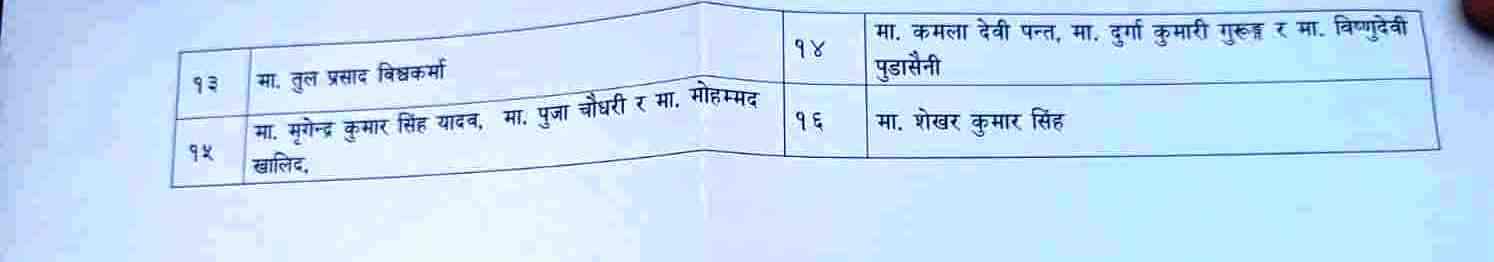 १३ मा. तुल प्रसाद विश्वकर्मा
१४ मा. कमला देवी पन्त, मा. दुर्गा कुमारी गुरूङ्ग र मा. विष्णुदेवी
पुडासैनी
१५ मा. मृगेन्द्र कुमार सिंह यादव, मा. पुजा चौधरी र मा. मोहम्मद
खालिद,
१६ मा. शेखर कुमार सिंह